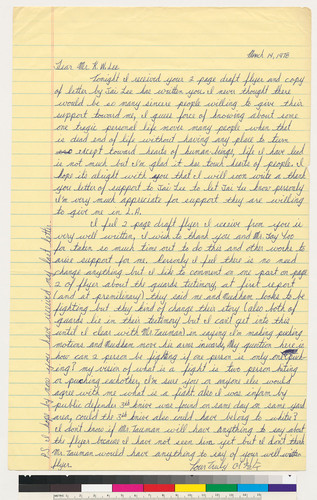 March 14, 1978
Dear Mr. K.W. Lee
Tonight I received your 2 page draft flyer and copy
of letter by Jai Lee has written you. I never thought there
would be so many sincere people willing to give their
support toward me, I guess force of knowing about some
one tragic personal life moves many people when that
is dead end of life without having any place to turn
except toward hearts of human beings, life I have lead
is not much but I'm glad it has touch hearts of people. I
hope its alright with you that I will soon write a thank
you letter of support to Jai Lee to let Jai Lee know
I'm very much appreciate for support they are willing
to give me in L.A.
I ful 2 page draft flyer I receive from you is
very well written, I wish to thank you and Mr. Jay Yoo
for taken so much time out to do this and other works to
arise support for me, I ful there is no need
change anything but I like to comment on one part on page
2 of flyer about the guards tistimony, at first report
(and at preminary) they said me and Needham looks to be
fighting but they kind of change their story (also both of
guards lie in their testimony but I can't get into this
until I clear with Mr. Tauman) on saying I'm making poking
motions and Needham move his arms inwards, My question here is
how can 2 person be fighting if one person is only
my view of what is a fight is two person hiting
or puching eachother, I'm sure you or anyone else would
agree with me what is a fight. Also I was inform by
public defender 3rd knive was found on same day at same yard
area, could the 3rd knive also could have belong to white?
I don't know if Mr. Tauman will have anything to say about
the flyer because I have not seen him yet but I don't think
Mr. Tauman would have anything to say of your well written
flyer.
Yours Truly
P.S. I hope by now you have received my last letter.